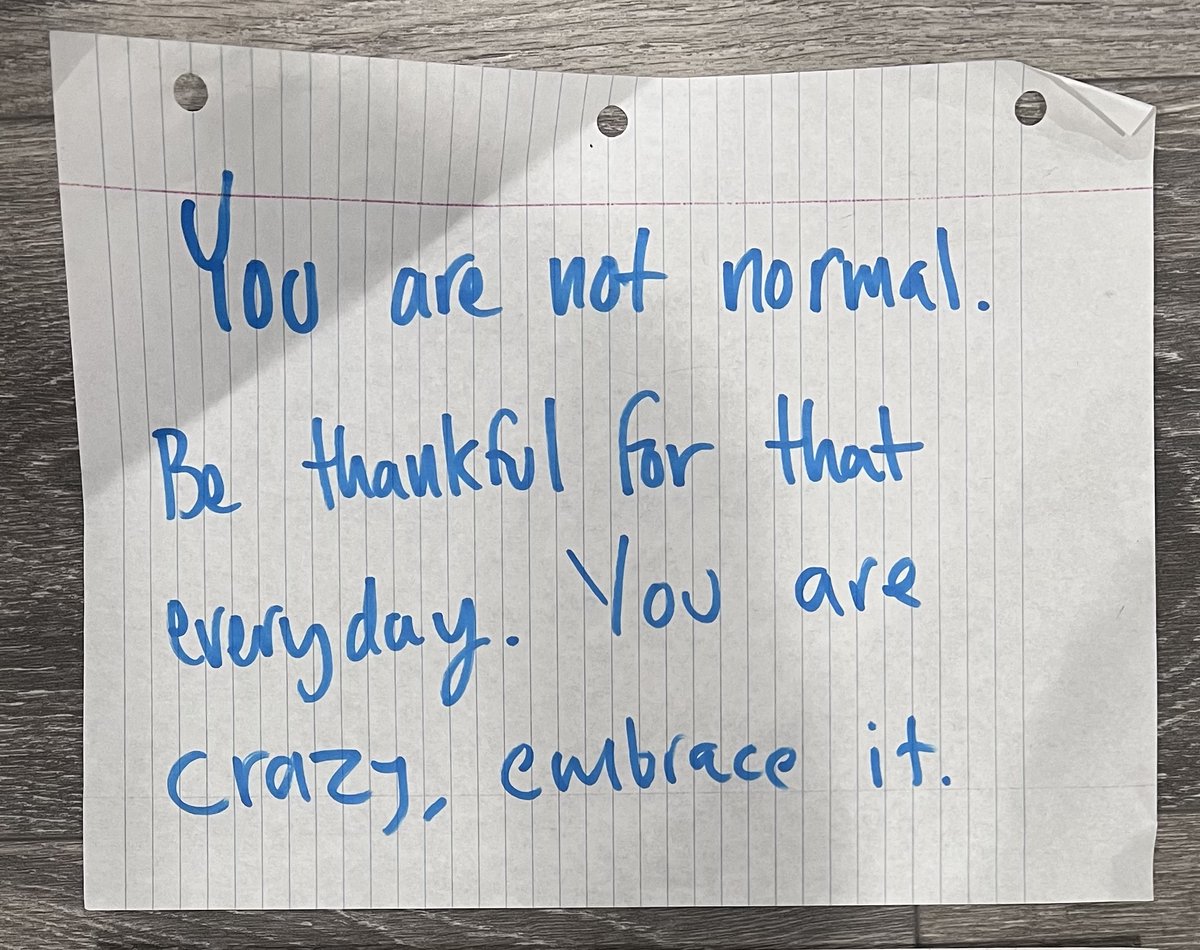 You are not normal.
Be thankful for that
everyday. You are
crazy, embrace it.